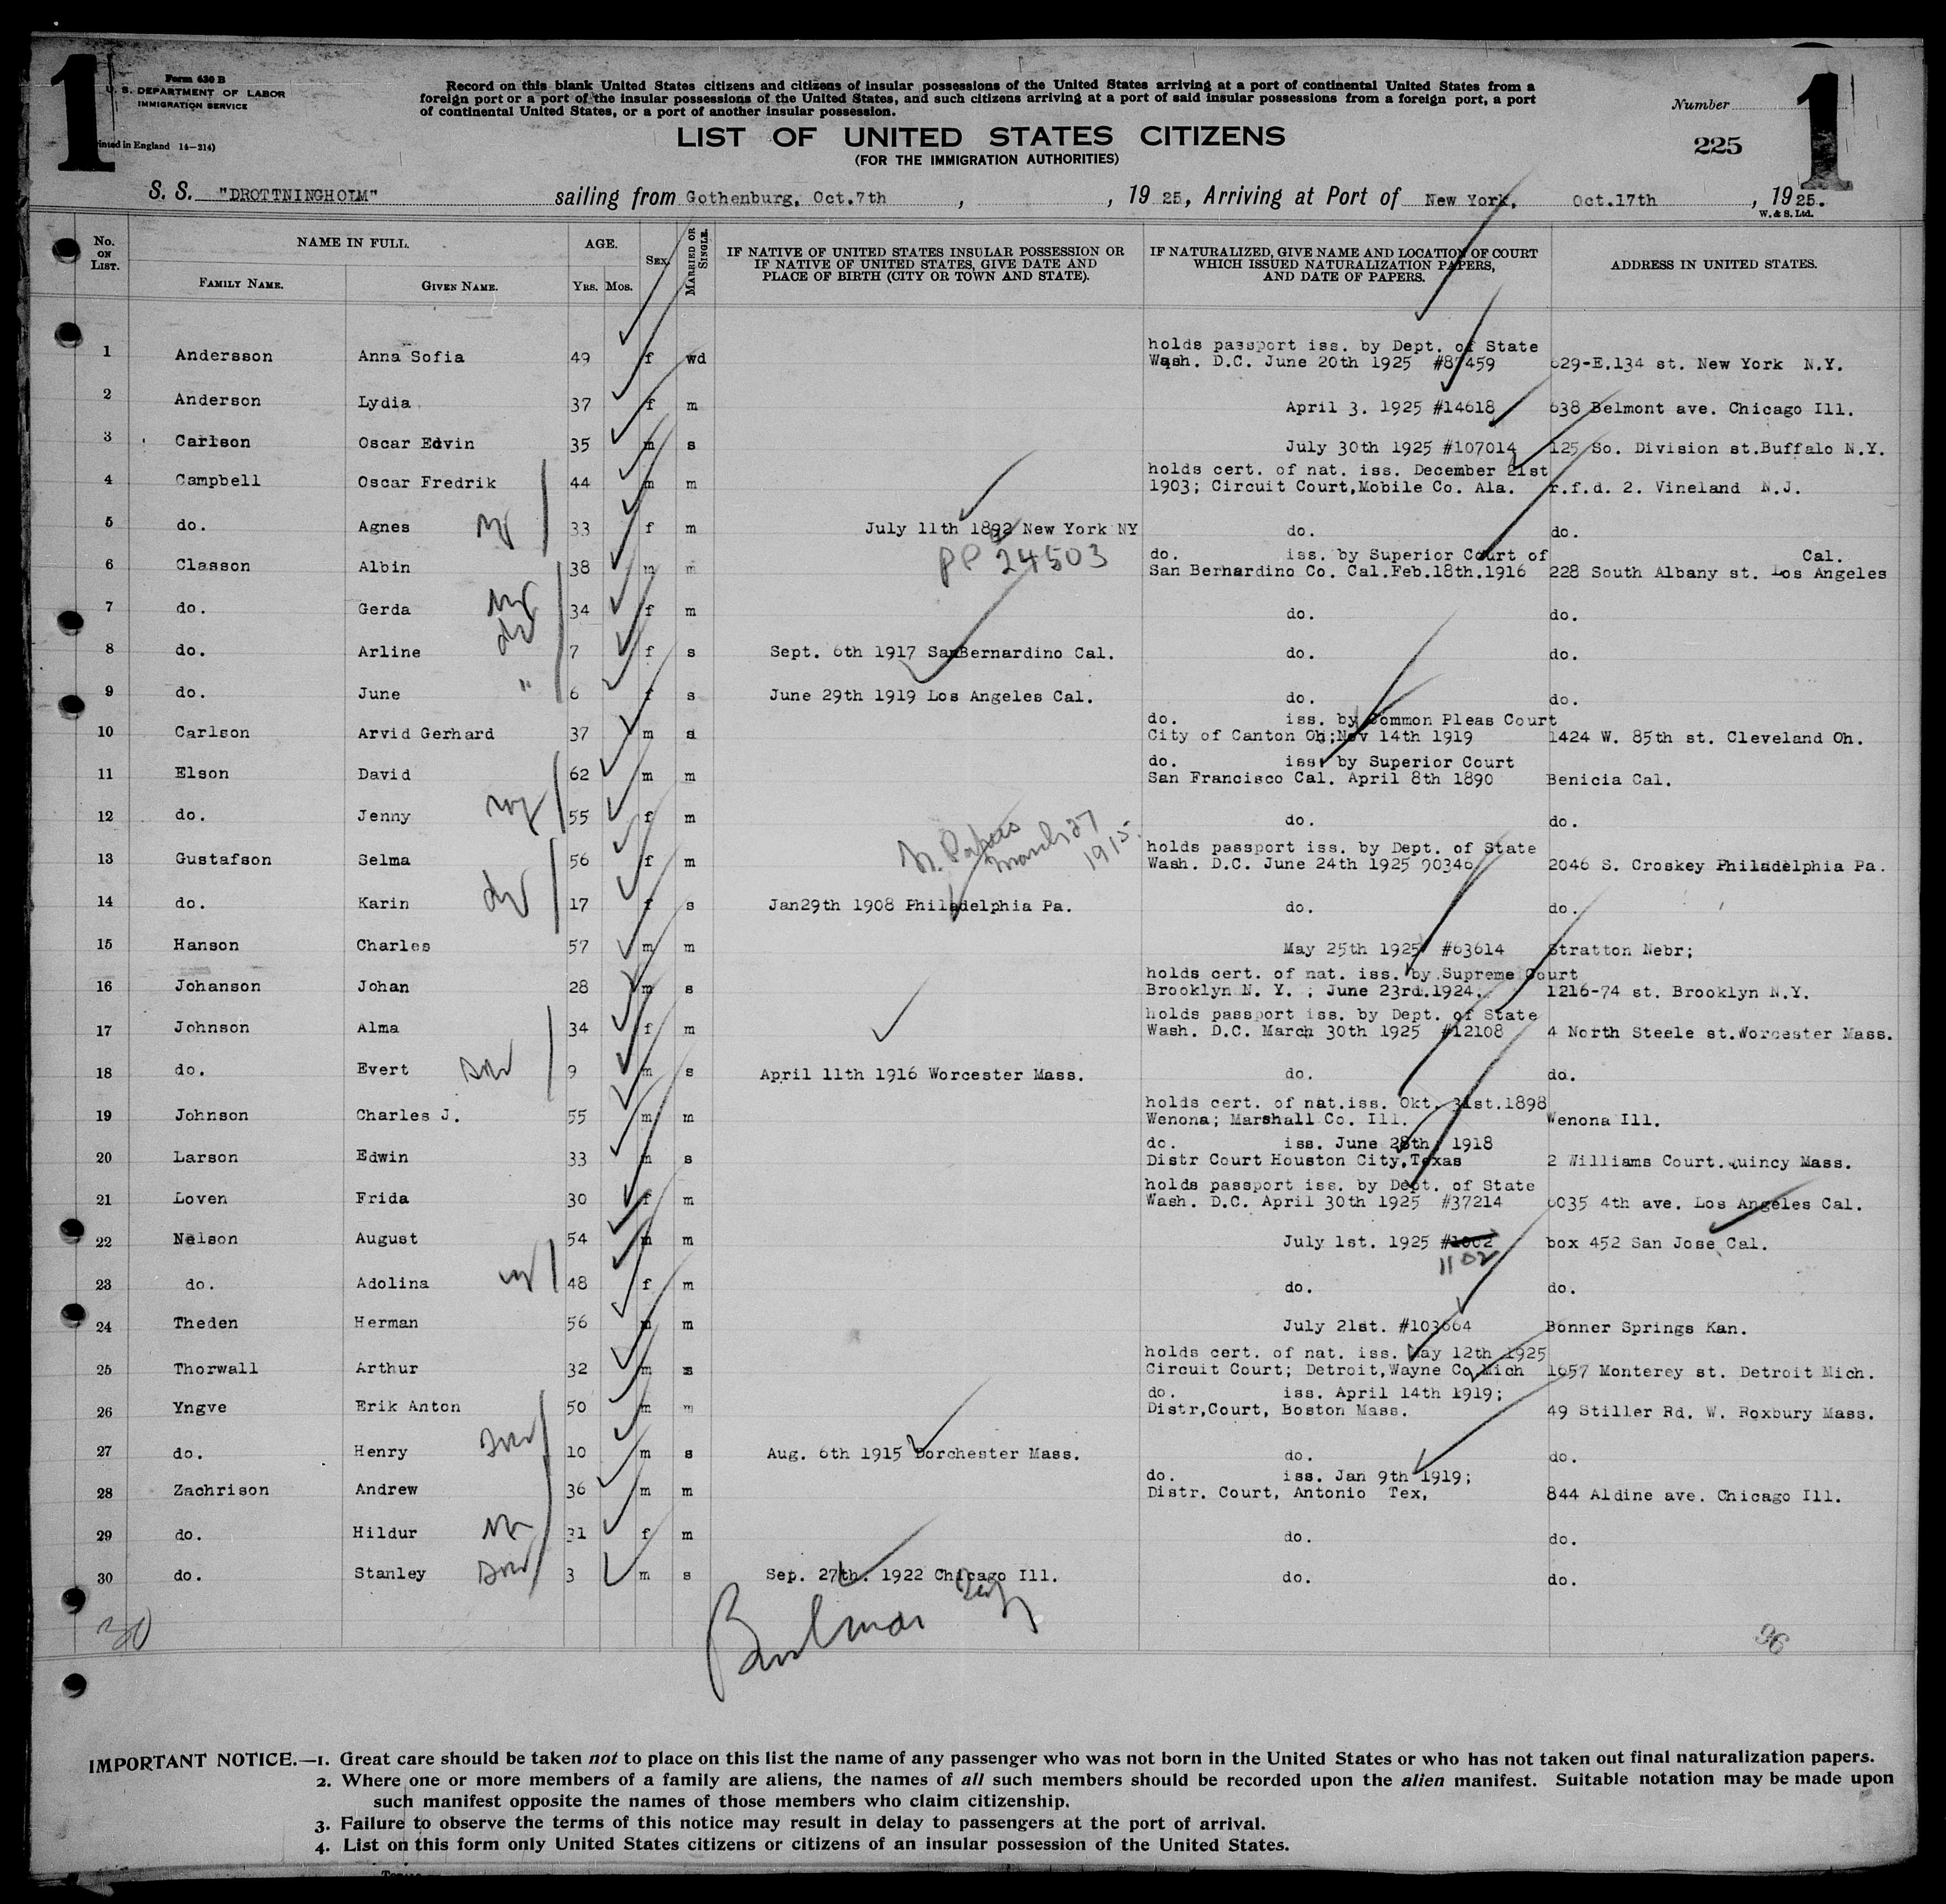 1
Form 630 B
U. S. DEPARTMENT OF LABOR
IMMIGRATION SERVICE
Printed in England 14-214)
Record on this blank United States citizens and citizens of insular possessions of the United States arriving at a port of continental United States from a
foreign port or a port of the insular possessions of the United States, and such citizens arriving at a port of said insular possessions from a foreign port, a port
of continental United States, or a port of another insular possession.
LIST OF UNITED STATES CITIZENS
(FOR THE IMMIGRATION AUTHORITIES)
Number
1
225
S. S. "DROTTNINGHOLM" sailing from Gothenburg, Oct.7th , 1925, Arriving at Port of New York, Oct.17th , 1925.
W. & S. Ltd.
No. ON LIST. NAME IN FULL. AGE. SEX. MARRIED OR SINGLE. IF NATIVE OF UNITED STATES INSULAR POSSESSION OR IF NATIVE OF UNITED STATES, GIVE DATE AND PLACE OF BIRTH (CITY OR TOWN AND STATE). IF NATURALIZED, GIVE NAME AND LOCATION OF COURT WHICH ISSUED NATURALIZATION PAPERS, AND DATE OF PAPERS. ADDRESS IN UNITED STATES.
FAMILY NAME. GIVEN NAME. YRS. MOS.
holds passport iss. by Dept. of State
1 Andersson Anna Sofia 49 f wd Wash. D.C. June 20th 1925 #87459 629-E.134 st. New York N.Y.
2 Anderson Lydia 37 f m April 3. 1925 #14618 638 Belmont ave. Chicago Ill.
3 Carlson Oscar Edvin 35 m s July 30th 1925 #107014 125 So. Division st.Buffalo N.Y.
holds cert. of nat. iss. December 21st
4 Campbell Oscar Fredrik 44 m m 1903; Circuit Court,Mobile Co. Ala. r.f.d. 2. Vineland N.J.
5 do. Agnes 33 f m July 11th 1892 New York NY do. do.
PP 24503
do. iss. by Superior Court of Cal.
6 Classon Albin 38 m m San Bernardino Co. Cal.Feb.18th.1916 228 South Albany st. Los Angeles
7 do. Gerda 34 f m do. do.
8 do. Arline 7 f s Sept. 6th 1917 SanBernardino Cal. do. do.
9 do. June " 6 f s June 29th 1919 Los Angeles Cal. do. do.
do. iss. by Common Pleas Court
10 Carlson Arvid Gerhard 37 m s City of Canton Oh;Nov 14th 1919 1424 W. 85th st. Cleveland Oh.
do. iss. by Superior Court
11 Elson David 62 m m San Francisco Cal. April 8th 1890 Benicia Cal.
12 do. Jenny 55 f m do. do.
N. Papers March 27 1915.
holds passport iss. by Dept. of State
13 Gustafson Selma 56 f m Wash. D.C. June 24th 1925 90346 2046 S. Croskey Philadelphia Pa.
14 do. Karin 17 f s Jan29th 1908 Philadelphia Pa. do. do.
15 Hanson Charles 57 m m May 25th 1925 #63614 Stratton Nebr;
holds cert. of nat. iss. by Supreme Court
16 Johanson Johan 28 m s Brooklyn N. Y. ; June 23rd.1924. 1216-74 st. Brooklyn N.Y.
holds passport iss. by Dept. of State
17 Johnson Alma 34 f m Wash. D.C. March 30th 1925 #12108 4 North Steele st.Worcester Mass.
18 do. Evert 9 m s April 11th 1916 Worcester Mass. do. do.
holds cert. of nat.iss. Okt. 31st.1898
19 Johnson Charles J. 55 m m Wenona; Marshall Co. Ill. Wenona Ill.
do. iss. June 28th, 1918
20 Larson Edwin 33 m s Distr Court Houston City,Texas 2 Williams Court.Quincy Mass.
holds passport iss. by Dept. of State
21 Loven Frida 30 f m Wash. D.C. April 30th 1925 #37214 6035 4th ave. Los Angeles Cal.
22 Nelson August 54 m m July 1st. 1925 #1002 box 452 San Jose Cal.
1102
23 do. Adolina 48 f m do. do.
24 Theden Herman 56 m m July 21st. #103664 Bonner Springs Kan.
holds cert. of nat. iss. May 12th 1925
25 Thorwall Arthur 32 m s Circuit Court; Detroit,Wayne Co Mich 1657 Monterey st. Detroit Mich.
do. iss. April 14th 1919;
26 Yngve Erik Anton 50 m m Distr,Court, Boston Mass. 49 Stiller Rd. W. Roxbury Mass.
27 do. Henry 10 m s Aug. 6th 1915 Dorchester Mass. do. do.
do. iss. Jan 9th 1919;
28 Zachrison Andrew 36 m m Distr. Court, Antonio Tex, 844 Aldine ave. Chicago Ill.
29 do. Hildur 31 f m do. do.
30 do. Stanley 3 m s Sep. 27th. 1922 Chicago Ill. do. do.
30
96
IMPORTANT NOTICE.—1. Great care should be taken not to place on this list the name of any passenger who was not born in the United States or who has not taken out final naturalization papers.
2. Where one or more members of a family are aliens, the names of all such members should be recorded upon the alien manifest. Suitable notation may be made upon
such manifest opposite the names of those members who claim citizenship.
3. Failure to observe the terms of this notice may result in delay to passengers at the port of arrival.
4. List on this form only United States citizens or citizens of an insular possession of the United States.